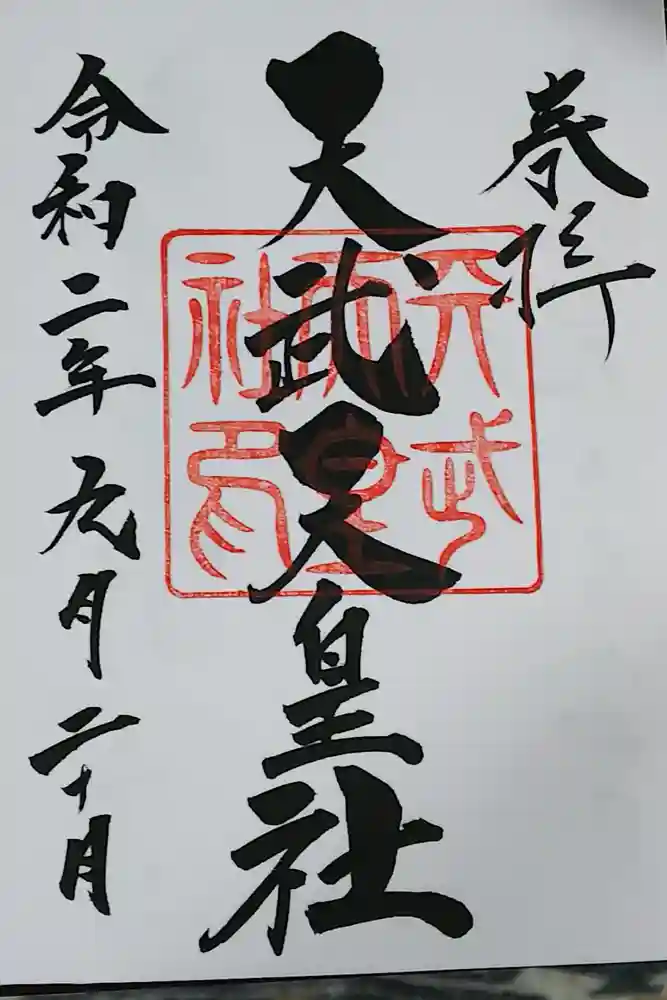 奉拝
天武天皇社
令和二年元月二十日
天武
天皇
社印